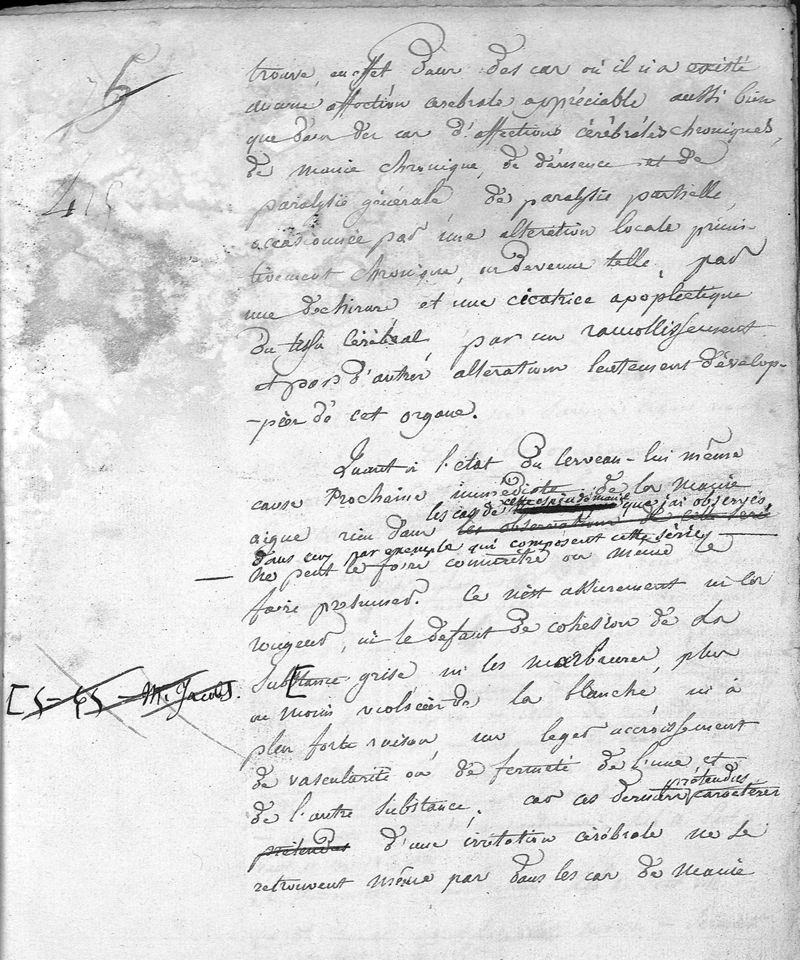 5
415
trouve, en effet dans des cas où il n'a existé
aucune affection cérébrale appréciable aussi bien
que dans des cas d'affections cérébrales chroniques,
de manie chronique, de démence et de
paralysie générale de paralysie partielle,
occasionnée par une altération locale primi-
tivement chronique, ou devenue telle, par
une dechirure et une cicatrice apoplectique
du tissu cérébral, par un ramollissement
et par d'autres altérations lentement dévelop-
-pées de cet organe.
Quant à l'état du cerveau lui même
cause prochaine immédiate de la manie
les cas de cette espèce de manie que j'ai observés,
aigue rien dans les observations de cette série
dans ceux par exemple qui composent cette série,
ne peut le faire connaître ou même le
faire présumer. Ce n'est assurement ni la
rougeur, ni le défaut de cohésion de la
[5-65 - M. Jacobs. substance [ grise ni les marbrures, plus
ou moins violacées de la blanche ni à
plus forte raison, un leger accroissement
de vascularité ou de fermeté de l'une et
prétendus
de l'autre substance, car ces derniers caractères
prétendus d'une irritation cérébrale ne se
retrouvent même pas dans les cas de manie